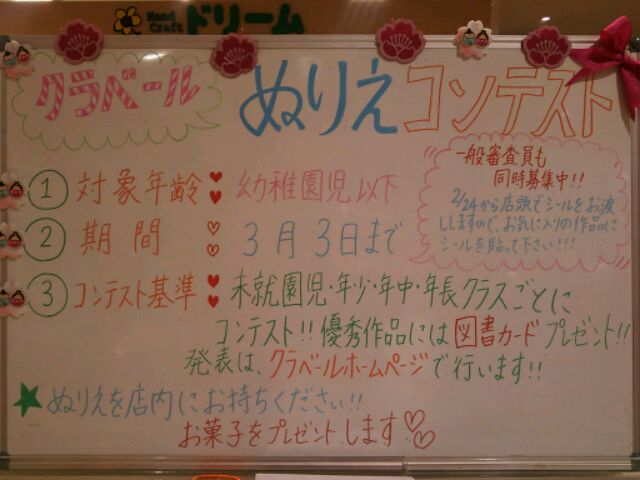 Hand Craft ドリーム
クラベール ぬりえコンテスト
一般審査員も
同時募集中!!
2/24から店頭でシールをお渡
ししますので、お気に入りの作品に
シールを貼って下さい!!!
① 対象年齢 ♥♥ 幼稚園児以下
② 期間 ♡♡ 3月3日まで
③ コンテスト基準 ♥♥ 未就園児・年少・年中・年長クラスごとに
コンテスト!! 優秀作品には図書カードプレゼント!!
発表は、クラベールホームページで行います!!
★ ぬりえを店内にお持ちください!!
お菓子をプレゼントします♡♡